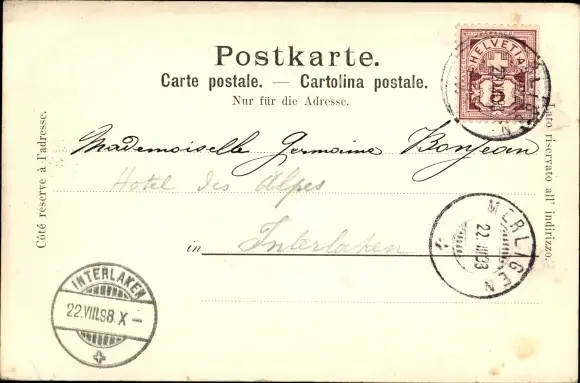 Postkarte.
Carte postale. — Cartolina postale.
Nur für die Adresse.
HELVETIA
5
Côté reservé à l'adresse.
Lato riservato all' indirizzo.
Mademoiselle Germaine Bonjean
Hotel des Alpes
in Interlaken
MERLIGEN
22.VIII.98
INTERLAKEN
22.VIII.98.X–